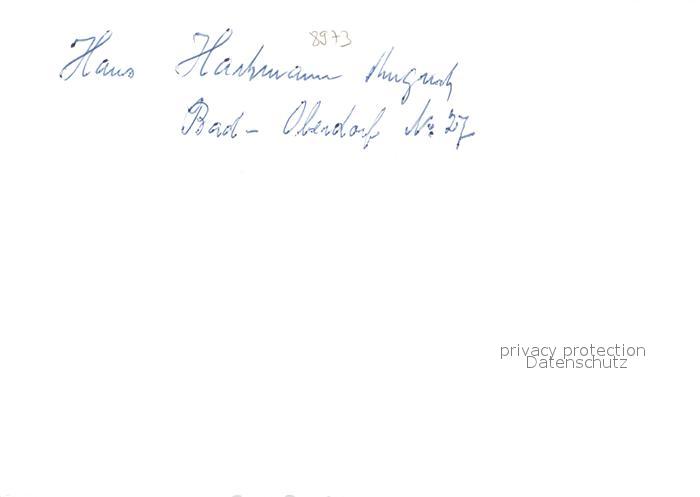 8973
Haus Hartmann August
Bad-Oberdorf No 27
privacy protection
Datenschutz